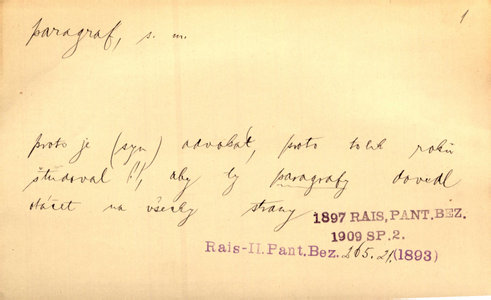 1
paragraf, s. m.
proto je (syn) advokát, proto tolik roků
študoval P, aby ty paragrafy dovedl
otáčet na všecky strany.
1897 RAIS, PANT. BEZ.
1909 SP. 2.
Rais-II. Pant. Bez. 265. 21. (1893)